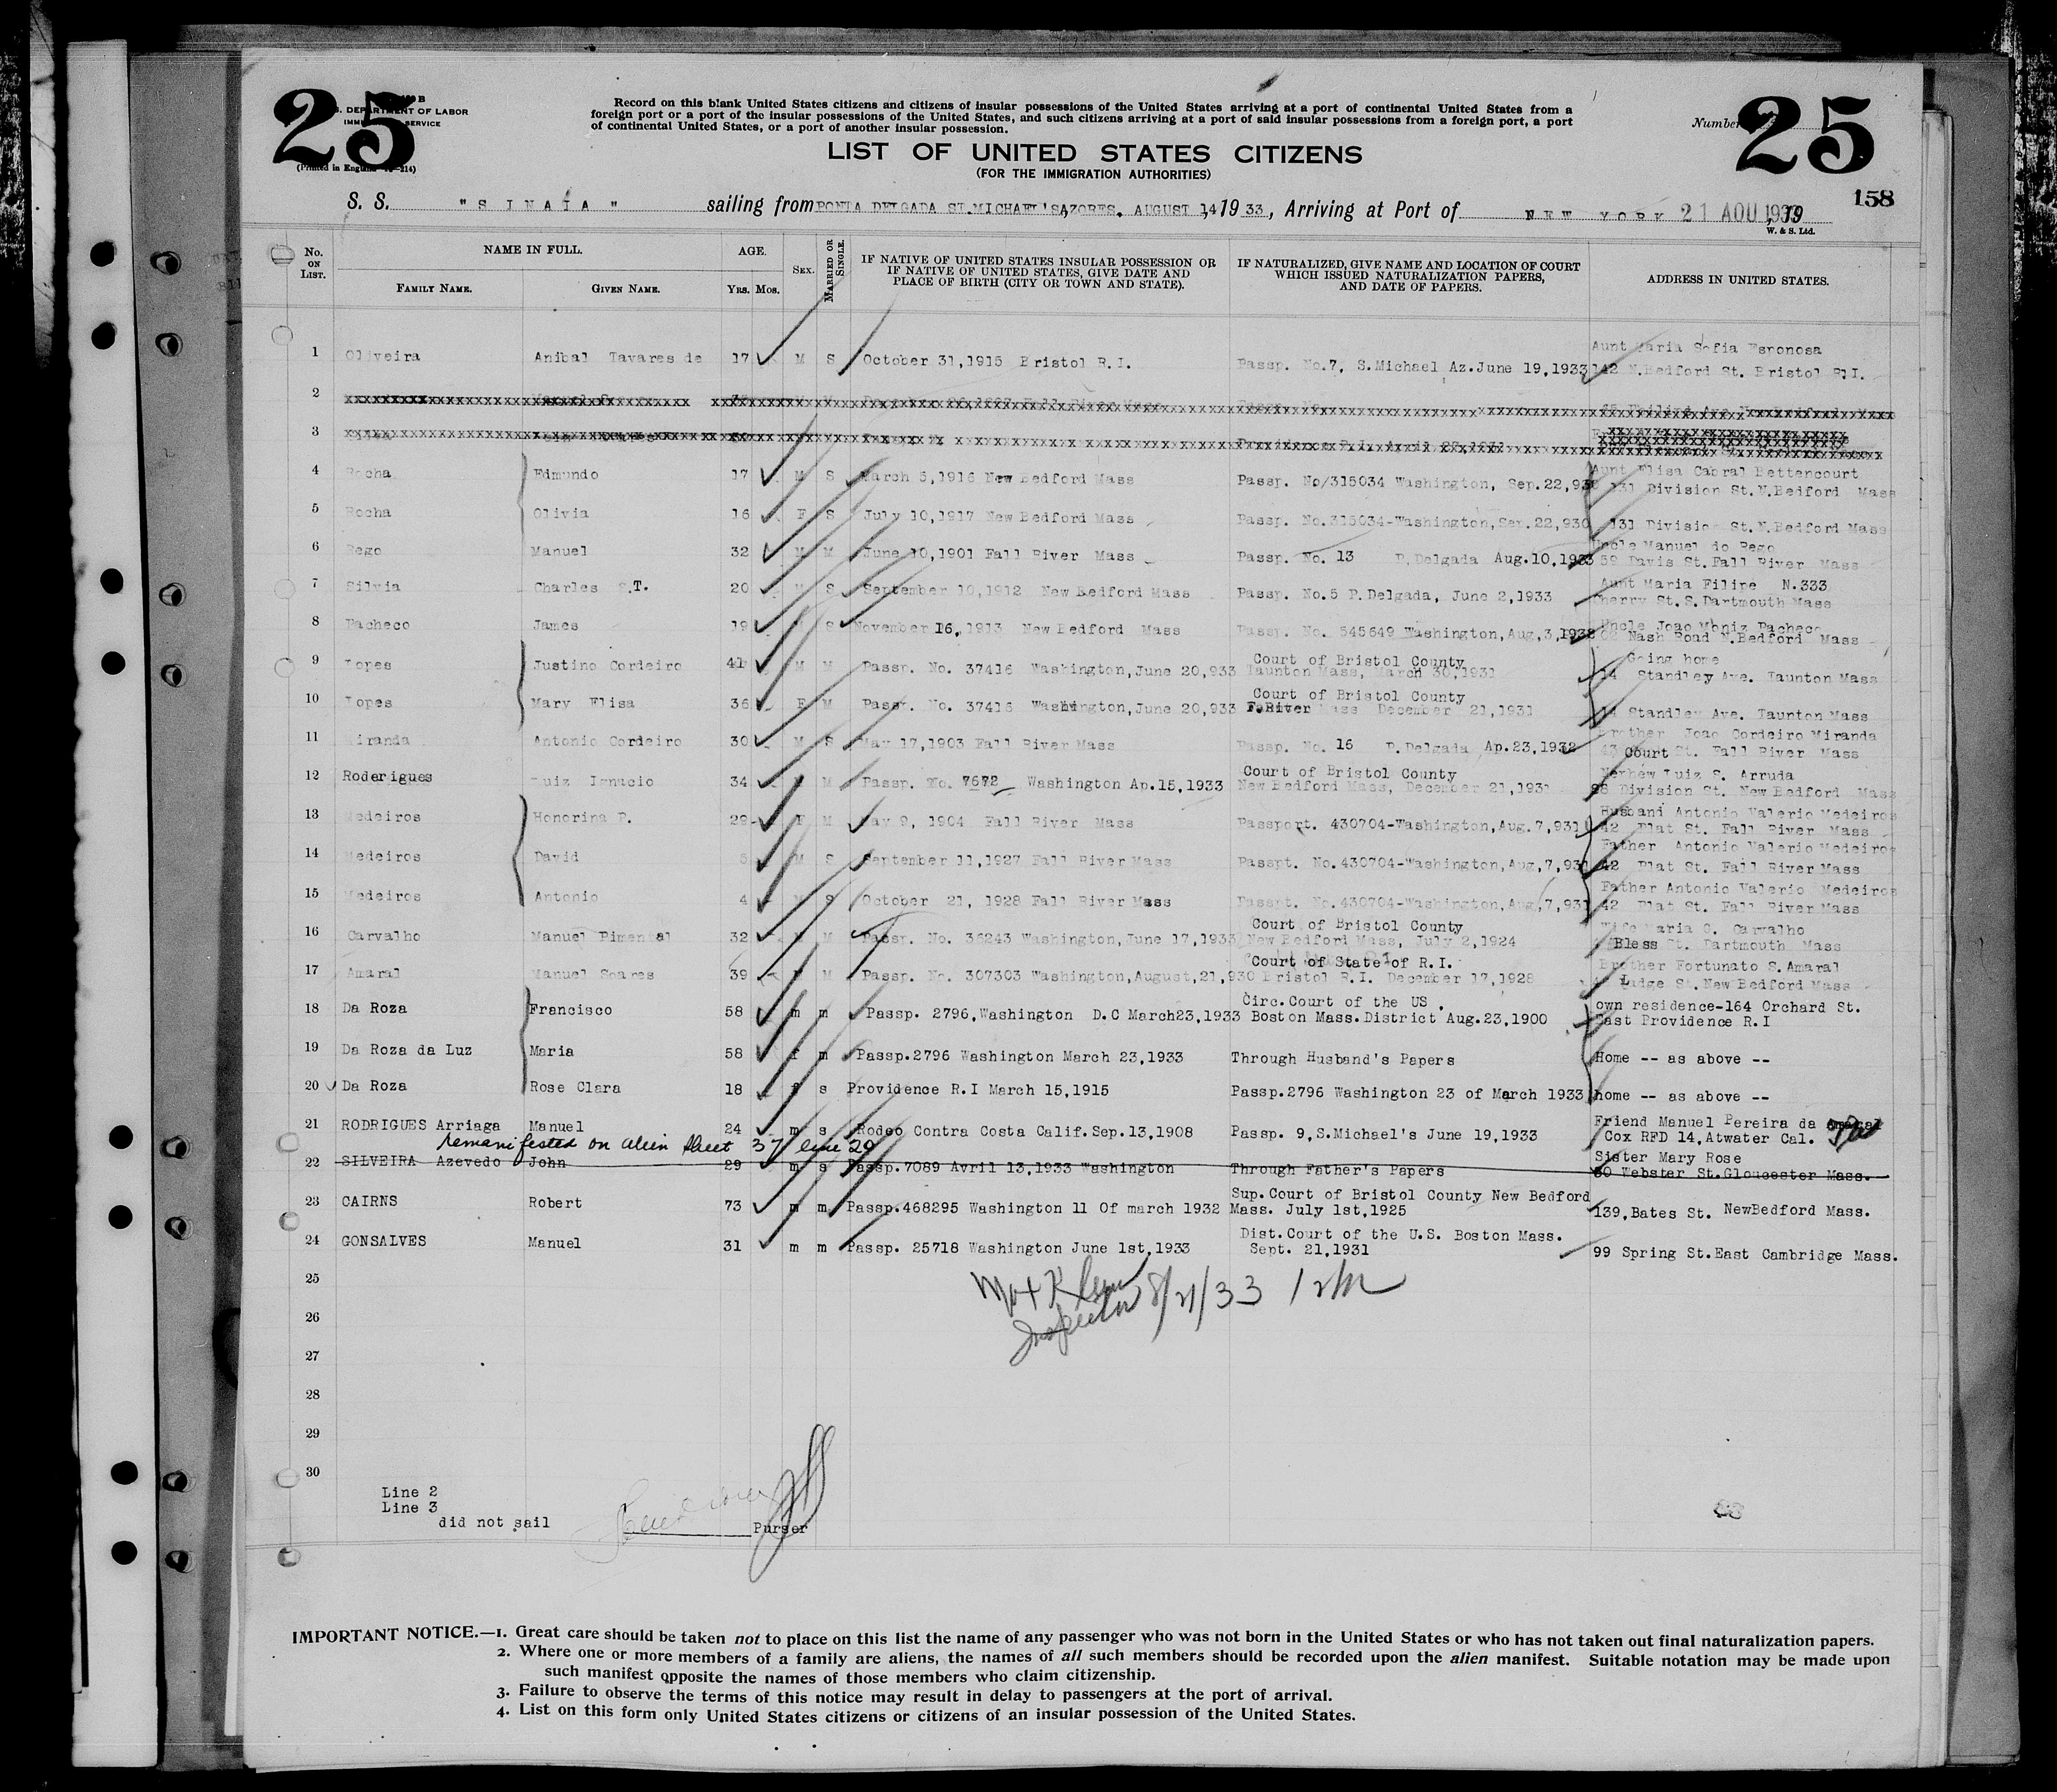 25
DEPARTMENT OF LABOR
SERVICE
(Printed in England
Record on this blank United States citizens and citizens of insular possessions of the United States arriving at a port of continental United States from a
foreign port or a port of the insular possessions of the United States, and such citizens arriving at a port of said insular possessions from a foreign port, a port
of continental United States, or a port of another insular possession.
Number 25
LIST OF UNITED STATES CITIZENS
(FOR THE IMMIGRATION AUTHORITIES)
158
S. S. "SINAIA" sailing from PONTA DELGADA ST.MICHAEL'S AZORES. AUGUST 14 1933, Arriving at Port of NEW YORK 21 AOU 1933 19
W. & S. Ltd.
No. ON LIST. NAME IN FULL. AGE. SEX. MARRIED OR SINGLE. IF NATIVE OF UNITED STATES INSULAR POSSESSION OR IF NATIVE OF UNITED STATES, GIVE DATE AND PLACE OF BIRTH (CITY OR TOWN AND STATE). IF NATURALIZED, GIVE NAME AND LOCATION OF COURT WHICH ISSUED NATURALIZATION PAPERS, AND DATE OF PAPERS. ADDRESS IN UNITED STATES.
FAMILY NAME. GIVEN NAME. YRS. MOS.
Aunt Maria Sofia Esponosa
1 Oliveira Anibal Tavares de 17 M S October 31,1915 Bristol R.I. Passp. No.7, S.Michael Az.June 19,1933 142 N.Bedford St. Bristol R.I.
2
3
Aunt Elisa Cabral Bettencourt
4 Rocha Edmundo 17 M S March 5,1916 New Bedford Mass Passp. No/315034 Washington, Sep.22,930 131 Division St.N.Bedford Mass
5 Rocha Olivia 16 F S July 10,1917 New Bedford Mass Passp. No.315034-Washington,Sep.22,930 131 Division St.N.Bedford Mass
Uncle Manuel do Rego
6 Rego Manuel 32 M M June 10,1901 Fall River Mass Passp. No. 13 P.Delgada Aug.10,1933 59 Davis St.Fall River Mass
Aunt Maria Filipe N.333
7 Silvia Charles S.T. 20 M S September 10,1912 New Bedford Mass Passp. No.5 P.Delgada, June 2,1933 Cherry St.S.Dartmouth Mass
Uncle Joao Moniz Pacheco
8 Pacheco James 19 S November 16,1913 New Bedford Mass Passp. No. 545649 Washington,Aug,3,1932 Nash Road N.Bedford Mass
Court of Bristol County Going home
9 Lopes Justino Cordeiro 41 M M Passp. No. 37416 Washington,June 20,933 Taunton Mass, March 30,1931 14 Standley Ave. Taunton Mass
Court of Bristol County
10 Lopes Mary Elisa 36 F M Passp. No. 37416 Washington,June 20,933 F.River Mass December 21,1931 14 Standley Ave. Taunton Mass
Brother Joao Cordeiro Miranda
11 Miranda Antonio Cordeiro 30 M S May 17,1903 Fall River Mass Passp. No. 16 P.Delgada Ap.23,1932 43 Court St. Fall River Mass
Court of Bristol County Nephew Luiz S. Arruda
12 Roderigues Luiz Ignacio 34 M Passp. No. 7672 Washington Ap.15,1933 New Bedford Mass, December 21,1931 Division St. New Bedford Mass
Husband Antonio Valerio Medeiros
13 Medeiros Honorina P. 29 F M May 9, 1904 Fall River Mass Passport. 430704-Washington,Aug.7,931 42 Plat St. Fall River Mass
Father Antonio Valerio Medeiros
14 Medeiros David 5 M S September 11,1927 Fall River Mass Passpt. No.430704-Washington,Aug,7,931 42 Plat St. Fall River Mass
Father Antonio Valerio Medeiros
15 Medeiros Antonio 4 M S October 21, 1928 Fall River Mass Passpt. No.430704-Washington,Aug,7,931 42 Plat St. Fall River Mass
Court of Bristol County Wife Maria C. Carvalho
16 Carvalho Manuel Pimental 32 M Passp. No. 36243 Washington,June 17,1933 New Bedford Mass, July 2,1924 Bless St. Dartmouth Mass
Court of State of R.I. Brother Fortunato S.Amaral
17 Amaral Manuel Soares 39 M Passp. No. 307303 Washington,August,21,930 Bristol R.I. December 17,1928 St.New Bedford Mass
Circ.Court of the US. own residence-164 Orchard St.
18 Da Roza Francisco 58 m m Passp. 2796,Washington D.C March23,1933 Boston Mass.District Aug.23,1900 East Providence R.I
19 Da Roza da Luz Maria 58 f m Passp.2796 Washington March 23,1933 Through Husband's Papers Home -- as above --
20 Da Roza Rose Clara 18 f s Providence R.I March 15,1915 Passp.2796 Washington 23 of March 1933 home -- as above --
Friend Manuel Pereira da
21 RODRIGUES Arriaga Manuel 24 m s Rodeo Contra Costa Calif.Sep.13,1908 Passp. 9,S.Michael's June 19,1933 Cox RFD 14,Atwater Cal.
remanifested on alien sheet 37 line 29
Sister Mary Rose
22 SILVEIRA Azevedo John 29 m s Passp.7089 Avril 13,1933 Washington Through Father's Papers 60 Webster St.Gloucester Mass.
Sup.Court of Bristol County New Bedford
23 CAIRNS Robert 73 m m Passp.468295 Washington 11 Of march 1932 Mass. July 1st,1925 139,Bates St. NewBedford Mass.
Dist.Court of the U.S. Boston Mass.
24 GONSALVES Manuel 31 m m Passp. 25718 Washington June 1st,1933 Sept. 21,1931 99 Spring St.East Cambridge Mass.
25
Max Klein
Inspector 8/21/33
26
27
28
29
30
Line 2
Line 3
did not sail
Purser
IMPORTANT NOTICE.—1. Great care should be taken not to place on this list the name of any passenger who was not born in the United States or who has not taken out final naturalization papers.
2. Where one or more members of a family are aliens, the names of all such members should be recorded upon the alien manifest. Suitable notation may be made upon
such manifest opposite the names of those members who claim citizenship.
3. Failure to observe the terms of this notice may result in delay to passengers at the port of arrival.
4. List on this form only United States citizens or citizens of an insular possession of the United States.